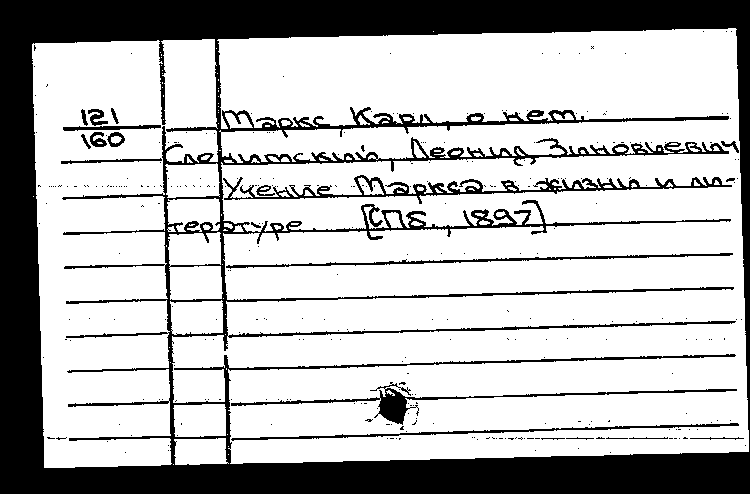 121 Маркс, Карл, о нем.
160
Слонимский, Леонид Зиновьевич
Учение Маркса в жизни и ли-
тературе. [СПб., 1897]